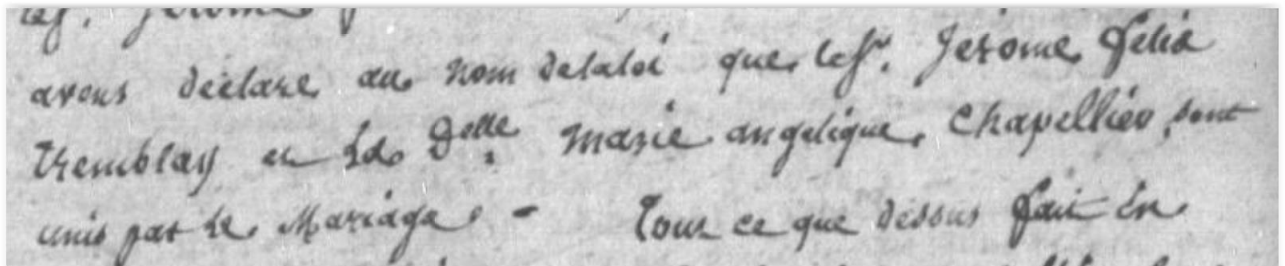 les. Jerome
avons déclaré au nom delaloi que les.r Jerome felix
tremblay et la Delle. marie angelique Chapellier, sont
unis par le Mariage. - Tout ce que dessus fait en